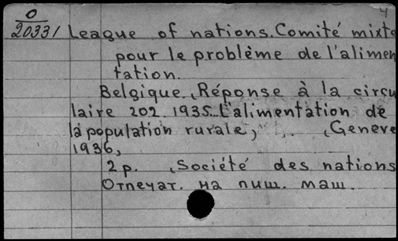 O
20331 League of nations. Comité mixte
pour le problème de l'alimen
tation.
Belgique. Réponse à la circu
laire 202. 1935. L'alimentation de
la population rurale, Geneve
1936,
2 p. Société des nations
Отпечат. на пиш. маш.